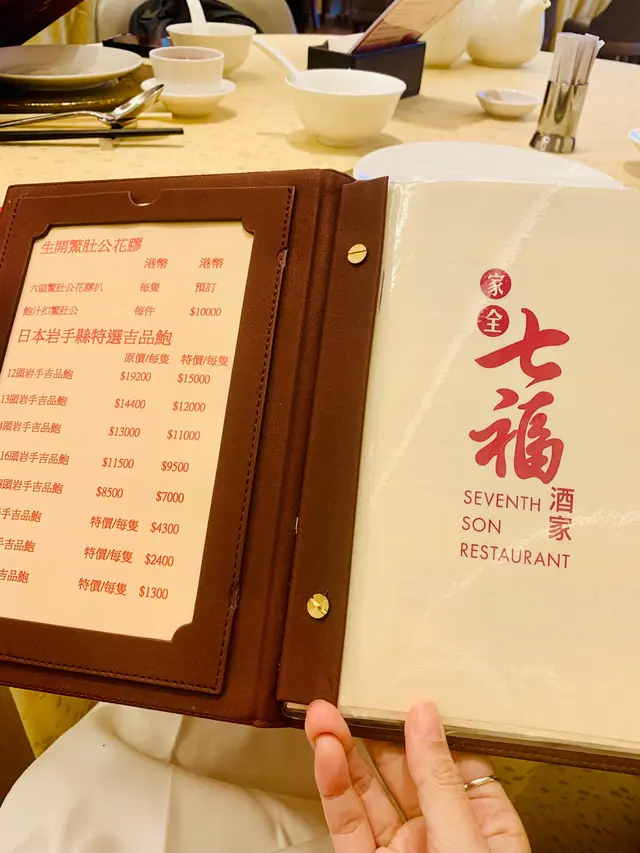 生開繁肚公花膠
港幣 港幣
六頭繁肚公花膠扒 每隻 預訂
鮑汁扣繁肚公 每件 $10000
日本岩手縣特選吉品鮑
原價/每隻 特價/每隻
12頭岩手吉品鮑 $19200 $15000
13頭岩手吉品鮑 $14400 $12000
頭岩手吉品鮑 $13000 $11000
16頭岩手吉品鮑 $11500 $9500
頭岩手吉品鮑 $8500 $7000
手吉品鮑 特價/每隻 $4300
手吉品鮑 特價/每隻 $2400
吉品鮑 特價/每隻 $1300
家全
七福
酒家
SEVENTH
SON
RESTAURANT